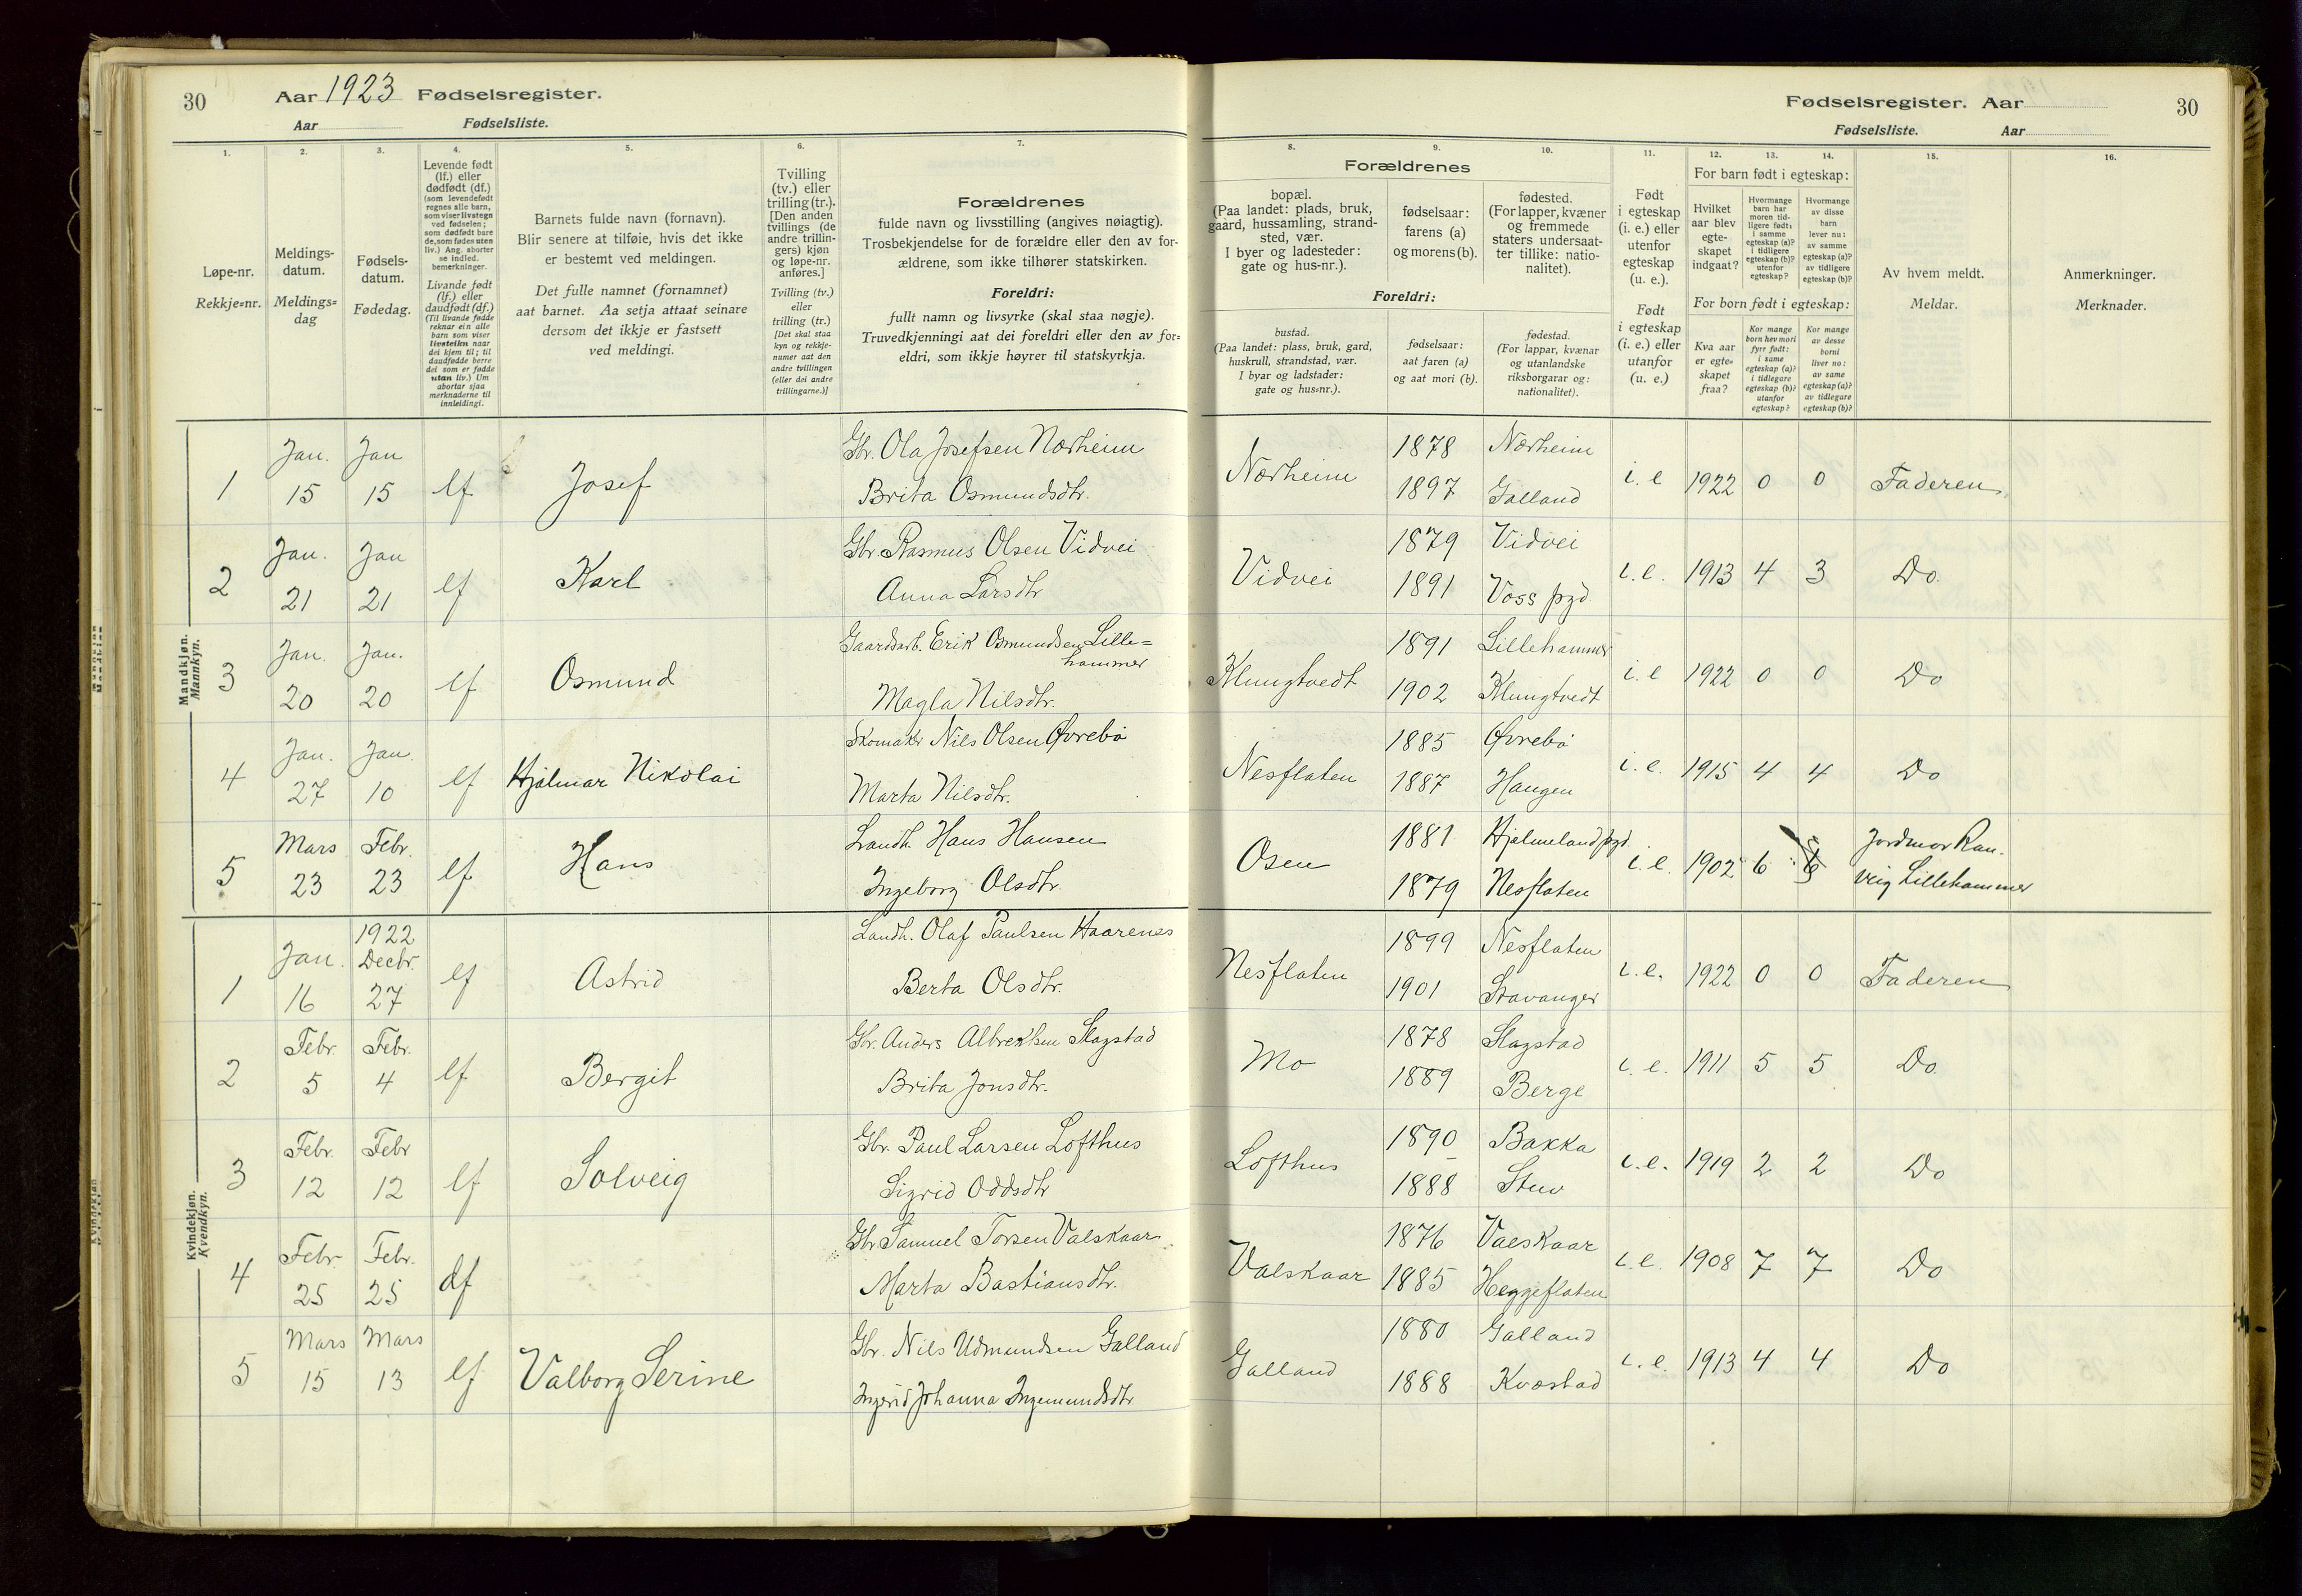 30 Aar 1923 Fødselsregister.
Aar Fødselsliste.
Fødselsregister. Aar 30
Fødselsliste. Aar
1.
Løpe-nr.
Rekkje=nr.
2.
Meldings-
datum.
Meldings=
dag
3.
Fødsels-
datum.
Fødedag.
4.
Levende født
(lf.) eller
dødfødt (df.)
(som levendefødt
regnes alle barn,
som viser livstegn
ved fødselen;
som dødfødt bare
de, som fødes uten
liv.) Ang. aborter
se indled.
bemerkninger.
Livande født
(lf.) eller
daudfødt (df.)
(Til livande fødde
reknar ein alle
barn som viser
livsteikn naar
dei kjem til; til
daudfødde berre
dei som er fødde
utan liv.) Um
abortar sjaa
merknaderne til
innleidingi.
5.
Barnets fulde navn (fornavn).
Blir senere at tilføie, hvis det ikke
er bestemt ved meldingen.
Det fulle namnet (fornamnet)
aat barnet. Aa setja attaat seinare
dersom det ikkje er fastsett
ved meldingi.
6.
Tvilling
(tv.) eller
trilling (tr.).
[Den anden
tvillings (de
andre trillin-
gers) kjøn
og løpe-nr.
anføres.]
Tvilling (tv.)
eller
trilling (tr.)
[Det skal staa
kyn og rekkje-
numer aat den
andre tvillingen
(eller dei andre
trillingarne.)]
7.
Forældrenes
fulde navn og livsstilling (angives nøiagtig).
Trosbekjendelse for de forældre eller den av for-
ældrene, som ikke tilhører statskirken.
Foreldri:
fullt namn og livsyrke (skal staa nøgje).
Truvedkjenningi aat dei foreldri eller den av for=
eldri, som ikkje høyrer til statskyrkja.
8. 9. 10.
Forældrenes
bopæl.
(Paa landet: plads, bruk,
gaard, hussamling, strand-
sted, vær.
I byer og ladesteder:
gate og hus-nr.).
fødselsaar:
farens (a)
og morens (b).
fødested.
(For lapper, kvæner
og fremmede
staters undersaat-
ter tillike: natio-
nalitet).
Foreldri:
bustad.
(Paa landet: plass, bruk, gard,
huskrull, strandstad, vær.
I byar og ladstader:
gate og hus=nr.).
fødselsaar:
aat faren (a)
og aat mori (b).
fødestad.
(For lappar, kvænar
og utanlandske
riksborgarar og:
nationalitet).
11.
Født
i egteskap
(i. e.) eller
utenfor
egteskap
(u. e.).
Født
i egteskap
(i. e.) eller
utanfor
(u. e.)
12. 13. 14.
For barn født i egteskap:
Hvilket
aar blev
egte-
skapet
indgaat?
Hvormange
barn har
moren tid-
ligere født:
i samme
egteskap (a)?
i tidligere
egteskap (b)?
utenfor
egteskap?
Hvormange
av disse
barn
lever nu:
av samme
egteskap (a)?
av tidligere
egteskap (b)?
For born født i egteskap:
Kva aar
er egte=
skapet
fraa?
Kor mange
born hev mori
fyrr født:
i same
egteskap (a)?
i tidlegare
egteskap (b)?
utanfor
egteskap?
Kor mange
av desse
borni
liver no:
av same
egteskap (a)?
av tidlegare
egteskap (b)?
15.
Av hvem meldt.
Meldar.
16.
Anmerkninger.
Merknader.
Mandkjøn.
Mannkyn.
1 Jan. 15 Jan 15 lf Josef Gbr. Ola Josefsen Nærheim
Brita Osmundsdtr.
Nærheim 1878 Nærheim
1897 Galland
i. e 1922 0 0 Faderen
2 Jan. 21 Jan 21 lf Karl Gbr Rasmus Olsen Vidvei
Anna Larsdtr
Vidvei 1879 Vidvei
1891 Voss pgd.
i. e. 1913 4 3 Do.
3 Jan. 20 Jan. 20 lf Osmund Gaardarb. Erik Osmundsen Lille=
hammer
Magla Nilsdtr.
Klungtvedt 1891 Lillehammer
1902 Klungtvedt
i. e 1922 0 0 Do
4 Jan. 27 Jan. 10 lf Hjalmar Nikolai Skomaker Nils Olsen Øvrebø
Marta Nilsdtr.
Nesflaten 1885 Øvrebø
1887 Haugen
i. e. 1915 4 4 Do
5 Mars 23 Febr. 23 lf Hans Landh. Hans Hansen
Ingeborg Olsdtr.
Osen 1881 Hjelmeland pgd.
1879 Nesflaten
i. e. 1902 6 6 Jordmor Ran-
veig Lillehammer
Kvindekjøn.
Kvendkyn.
1 Jan. 16 1922 Decbr. 27 lf Astrid Landh. Olaf Paulsen Haarenes
Berta Olsdtr.
Nesflaten 1899 Nesflaten
1901 Stavanger
i. e. 1922 0 0 Faderen
2 Febr. 5 Febr. 4 lf Bergit Gbr. Anders Albrektsen Slagstad
Brita Jonsdtr.
Mo 1878 Slagstad
1889 Berge
i. e. 1911 5 5 Do.
3 Febr. 12 Febr 12 lf Solveig Gbr. Paul Larsen Lofthus
Sigrid Oddsdtr
Lofthus 1890 Bakka
1888 Stuv
i. e. 1919 2 2 Do
4 Febr. 25 Febr. 25 df Gbr Samuel Torsen Valskaar
Marta Bastiansdtr.
Valskaar 1876 Valskaar
1885 Heggeflaten
i. e. 1908 7 7 Do
5 Mars 15 Mars 13 lf Valborg Serine Gbr. Nils Udmundsen Galland
Ingrid Johanna Ingemundsdtr
Galland 1880 Galland
1888 Kvæstad
i. e. 1913 4 4 Do